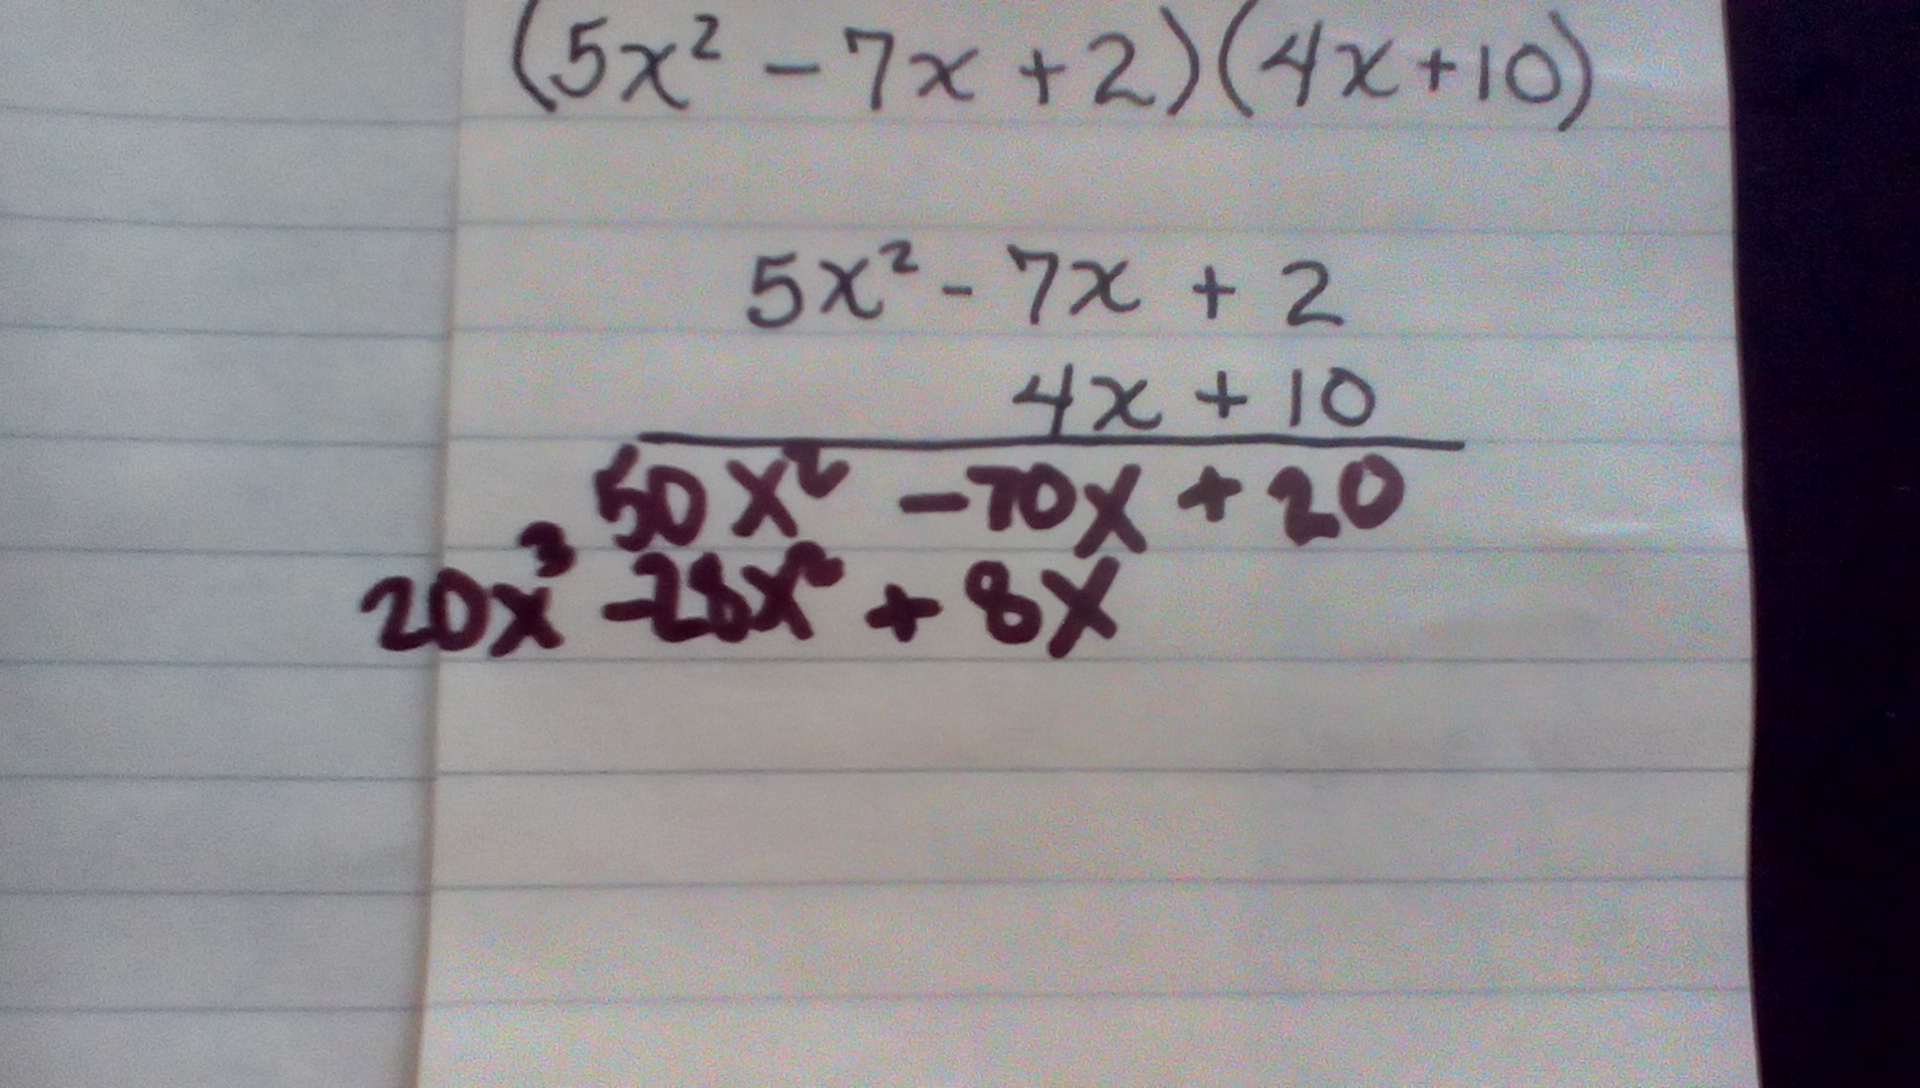 (5x² - 7x + 2)(4x + 10)
5x² - 7x + 2
4x + 10
50x² - 70x + 20
20x³ - 28x² + 8x